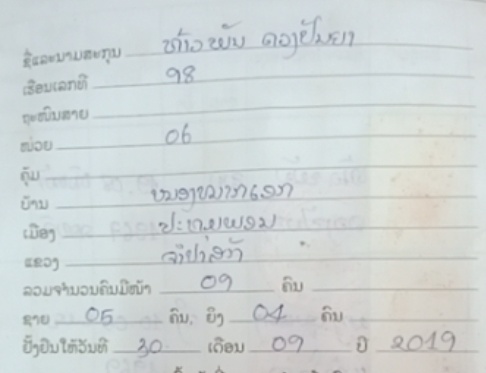 ຊື່ແລະນາມສະກຸນ ທ້າວ ພັນ ດວງປັນຍາ
ເຮືອນເລກທີ 98
ຖະໜົນສາຍ
ໜ່ວຍ 06
ຄຸ້ມ
ບ້ານ ໜອງໝາກແຊກ
ເມືອງ ປະທຸມພອນ
ແຂວງ ຈຳປາສັກ
ລວມຈຳນວນຄົນມີໜ້າ 09 ຄົນ
ຊາຍ 05 ຄົນ, ຍິງ 04 ຄົນ
ຢັ້ງຢືນໃຫ້ວັນທີ 30 ເດືອນ 09 ປີ 2019